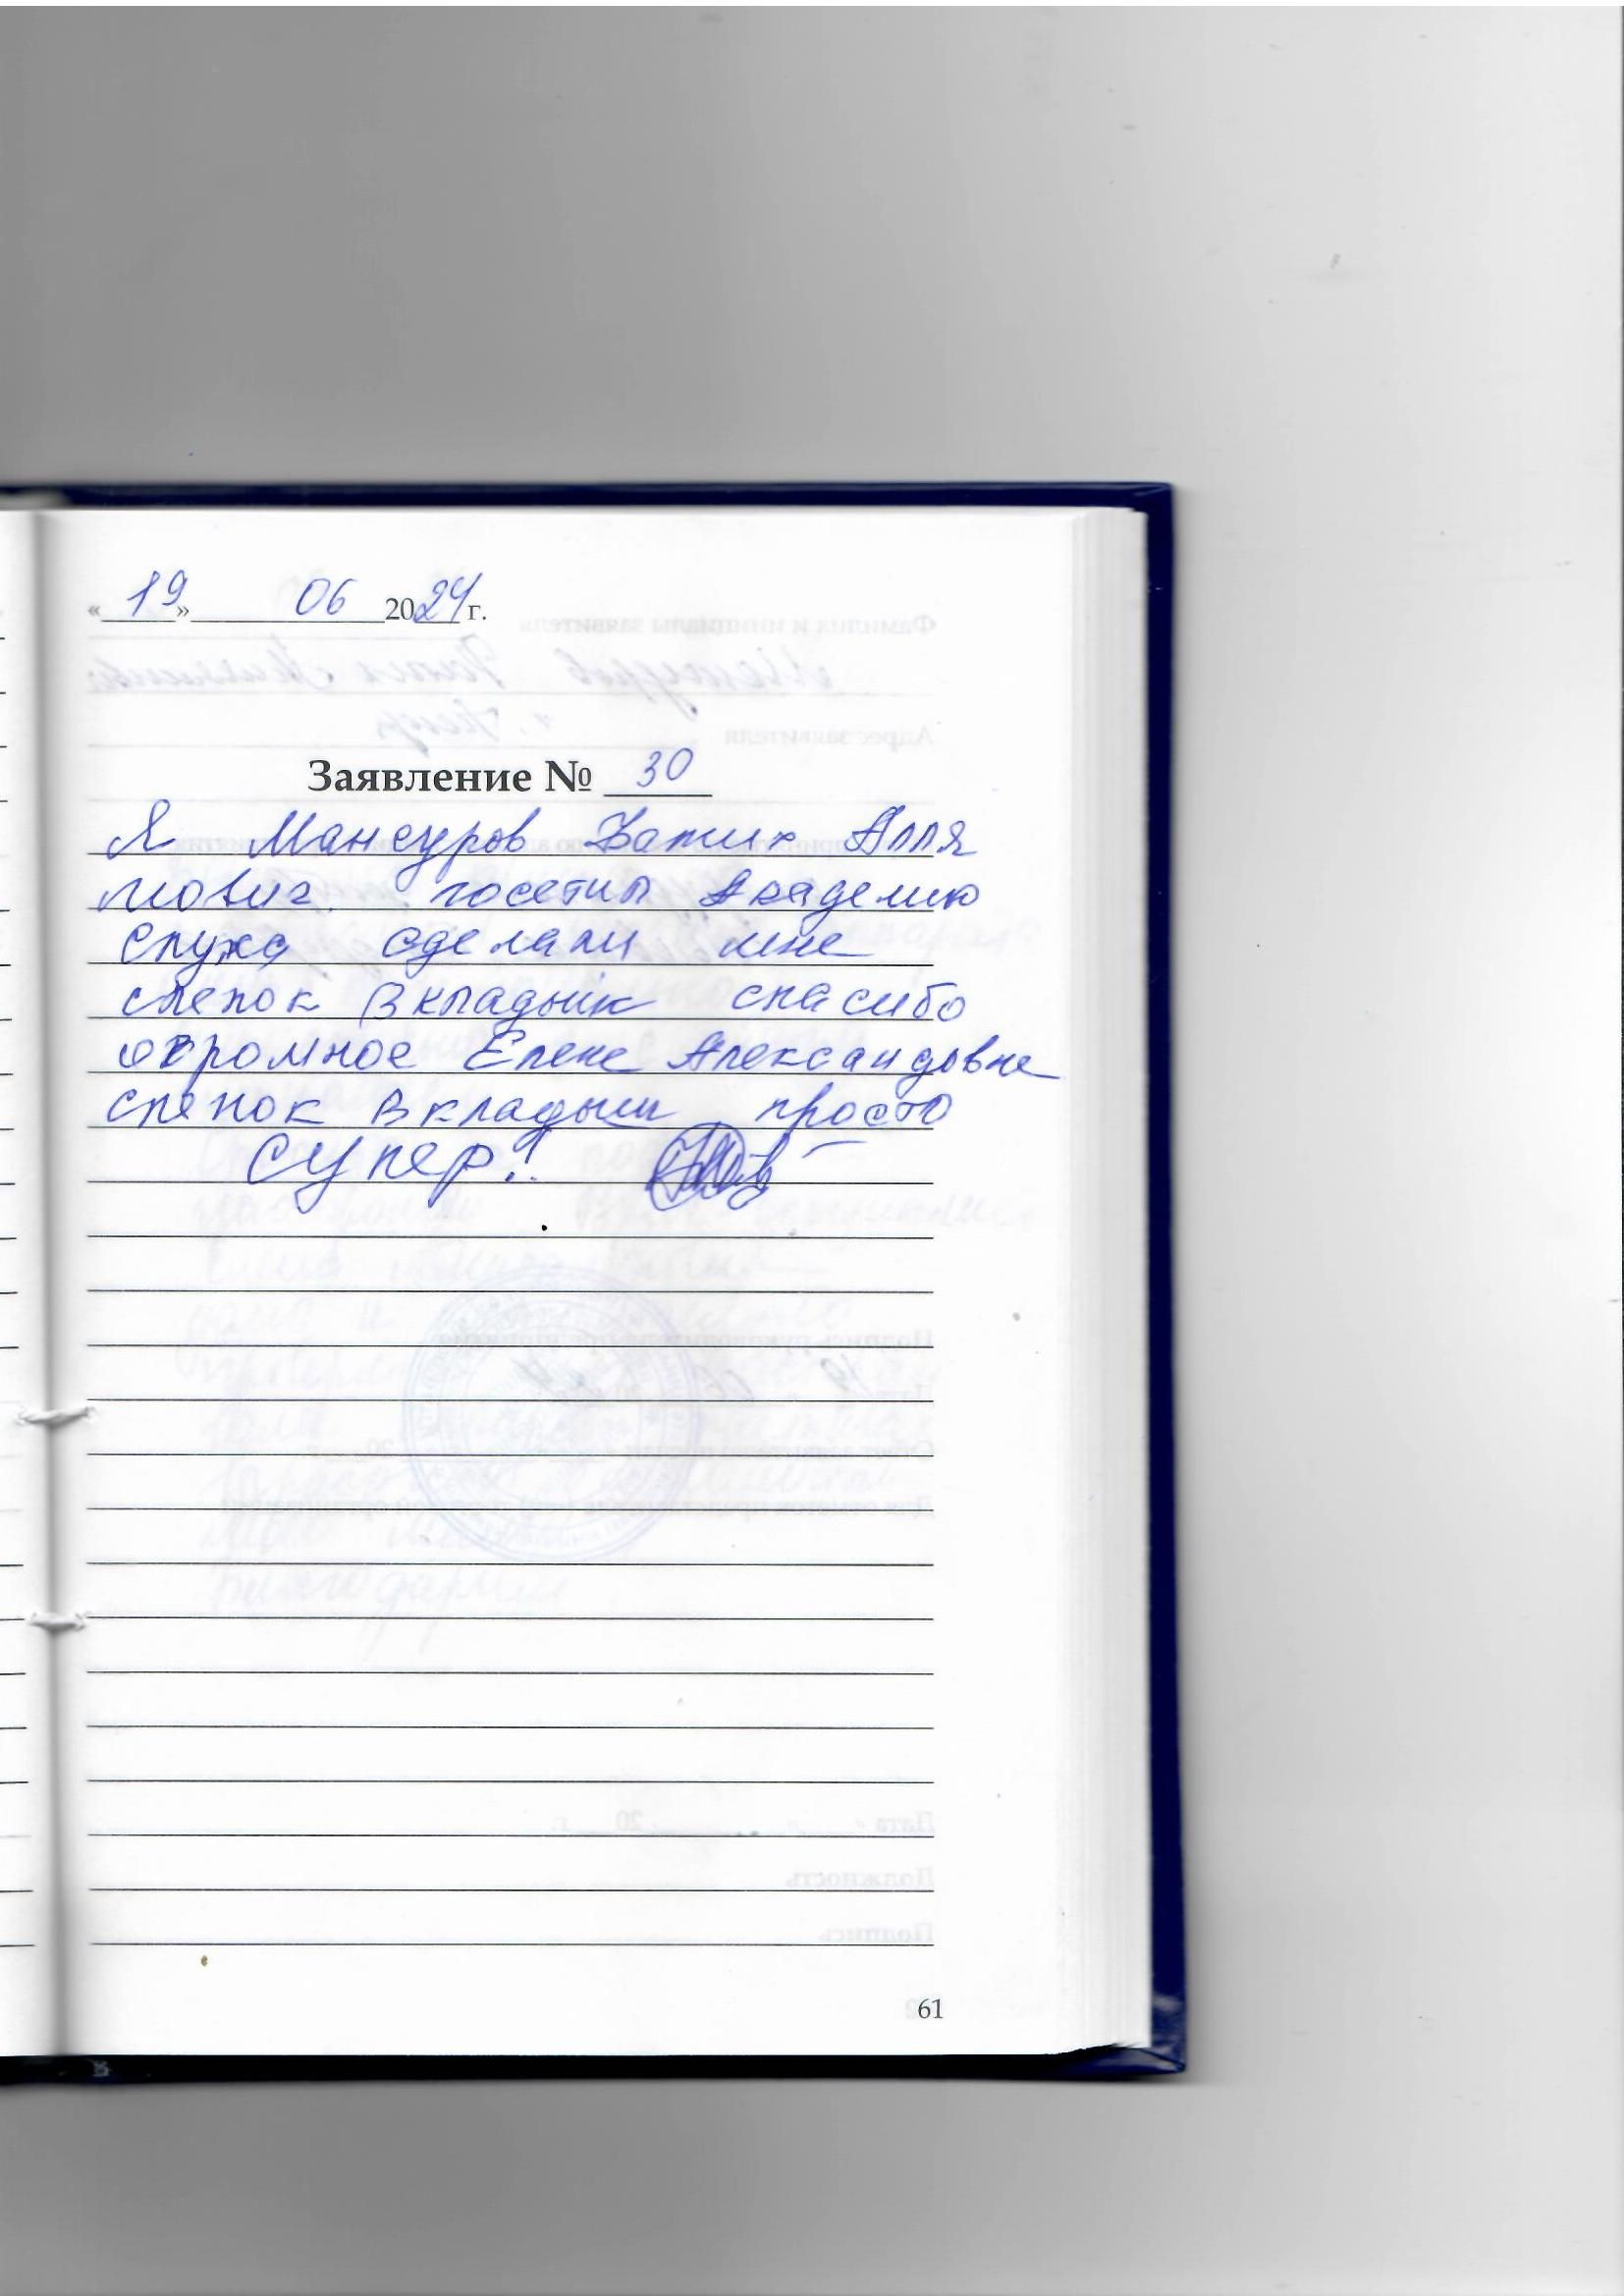 «19» 06 2024 г.
Заявление № 30
Я Мансуров Фатих Алля
мович посетил Академию
слуха сделали мне
слепок вкладыш спасибо
огромное Елене Александовне
слепок вкладыш просто
супер!
61